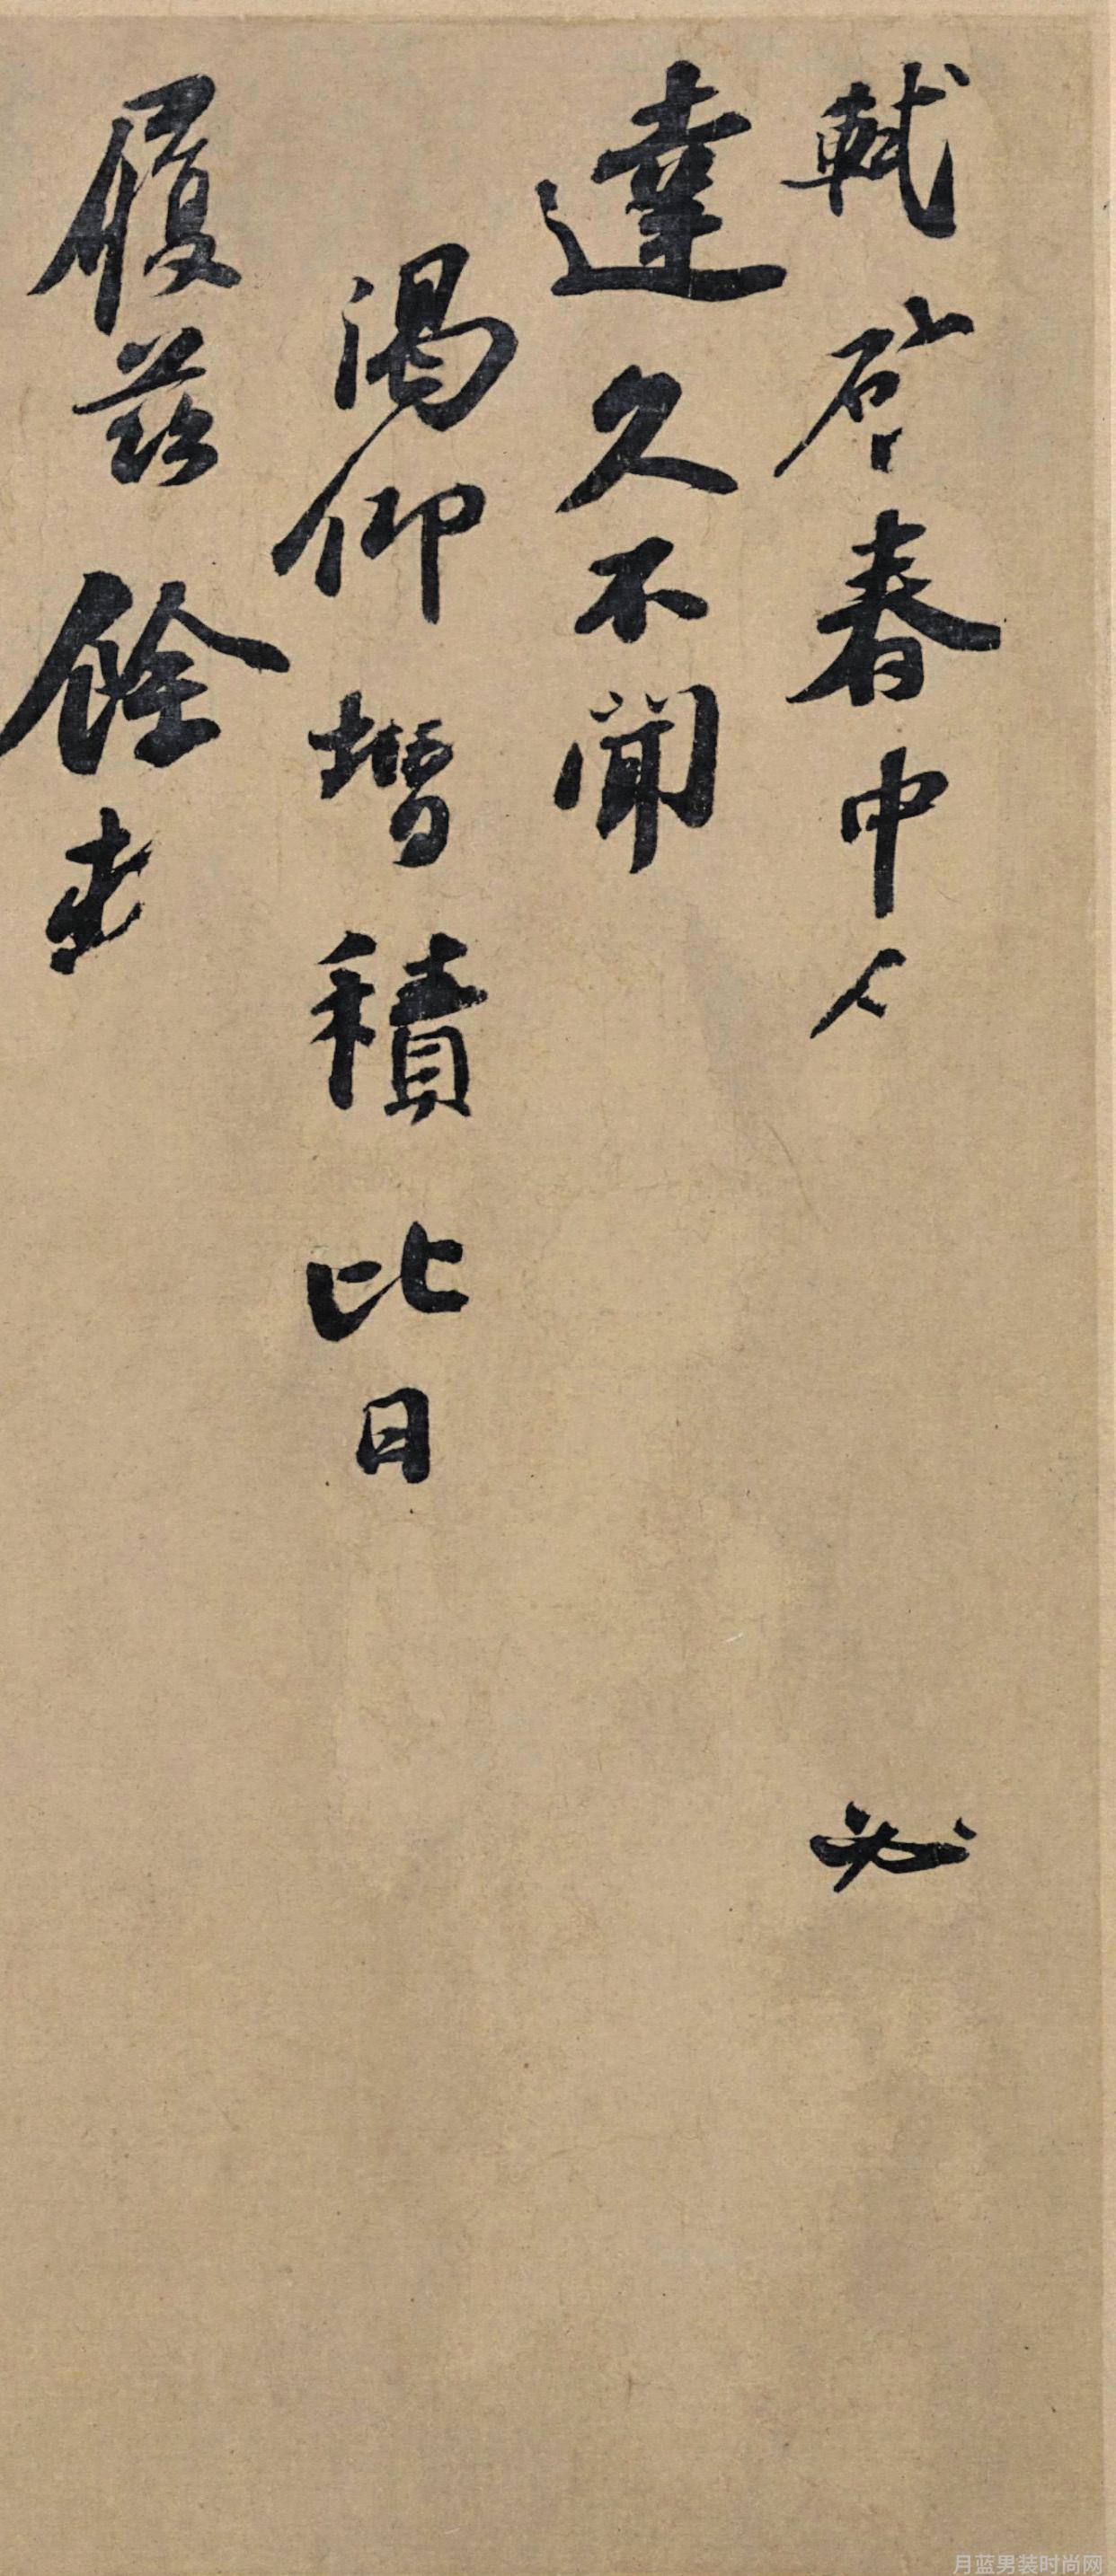 軾啓春中人必
達久不聞
渴仰增積比日
履茲餘
月蓝男装时尚网